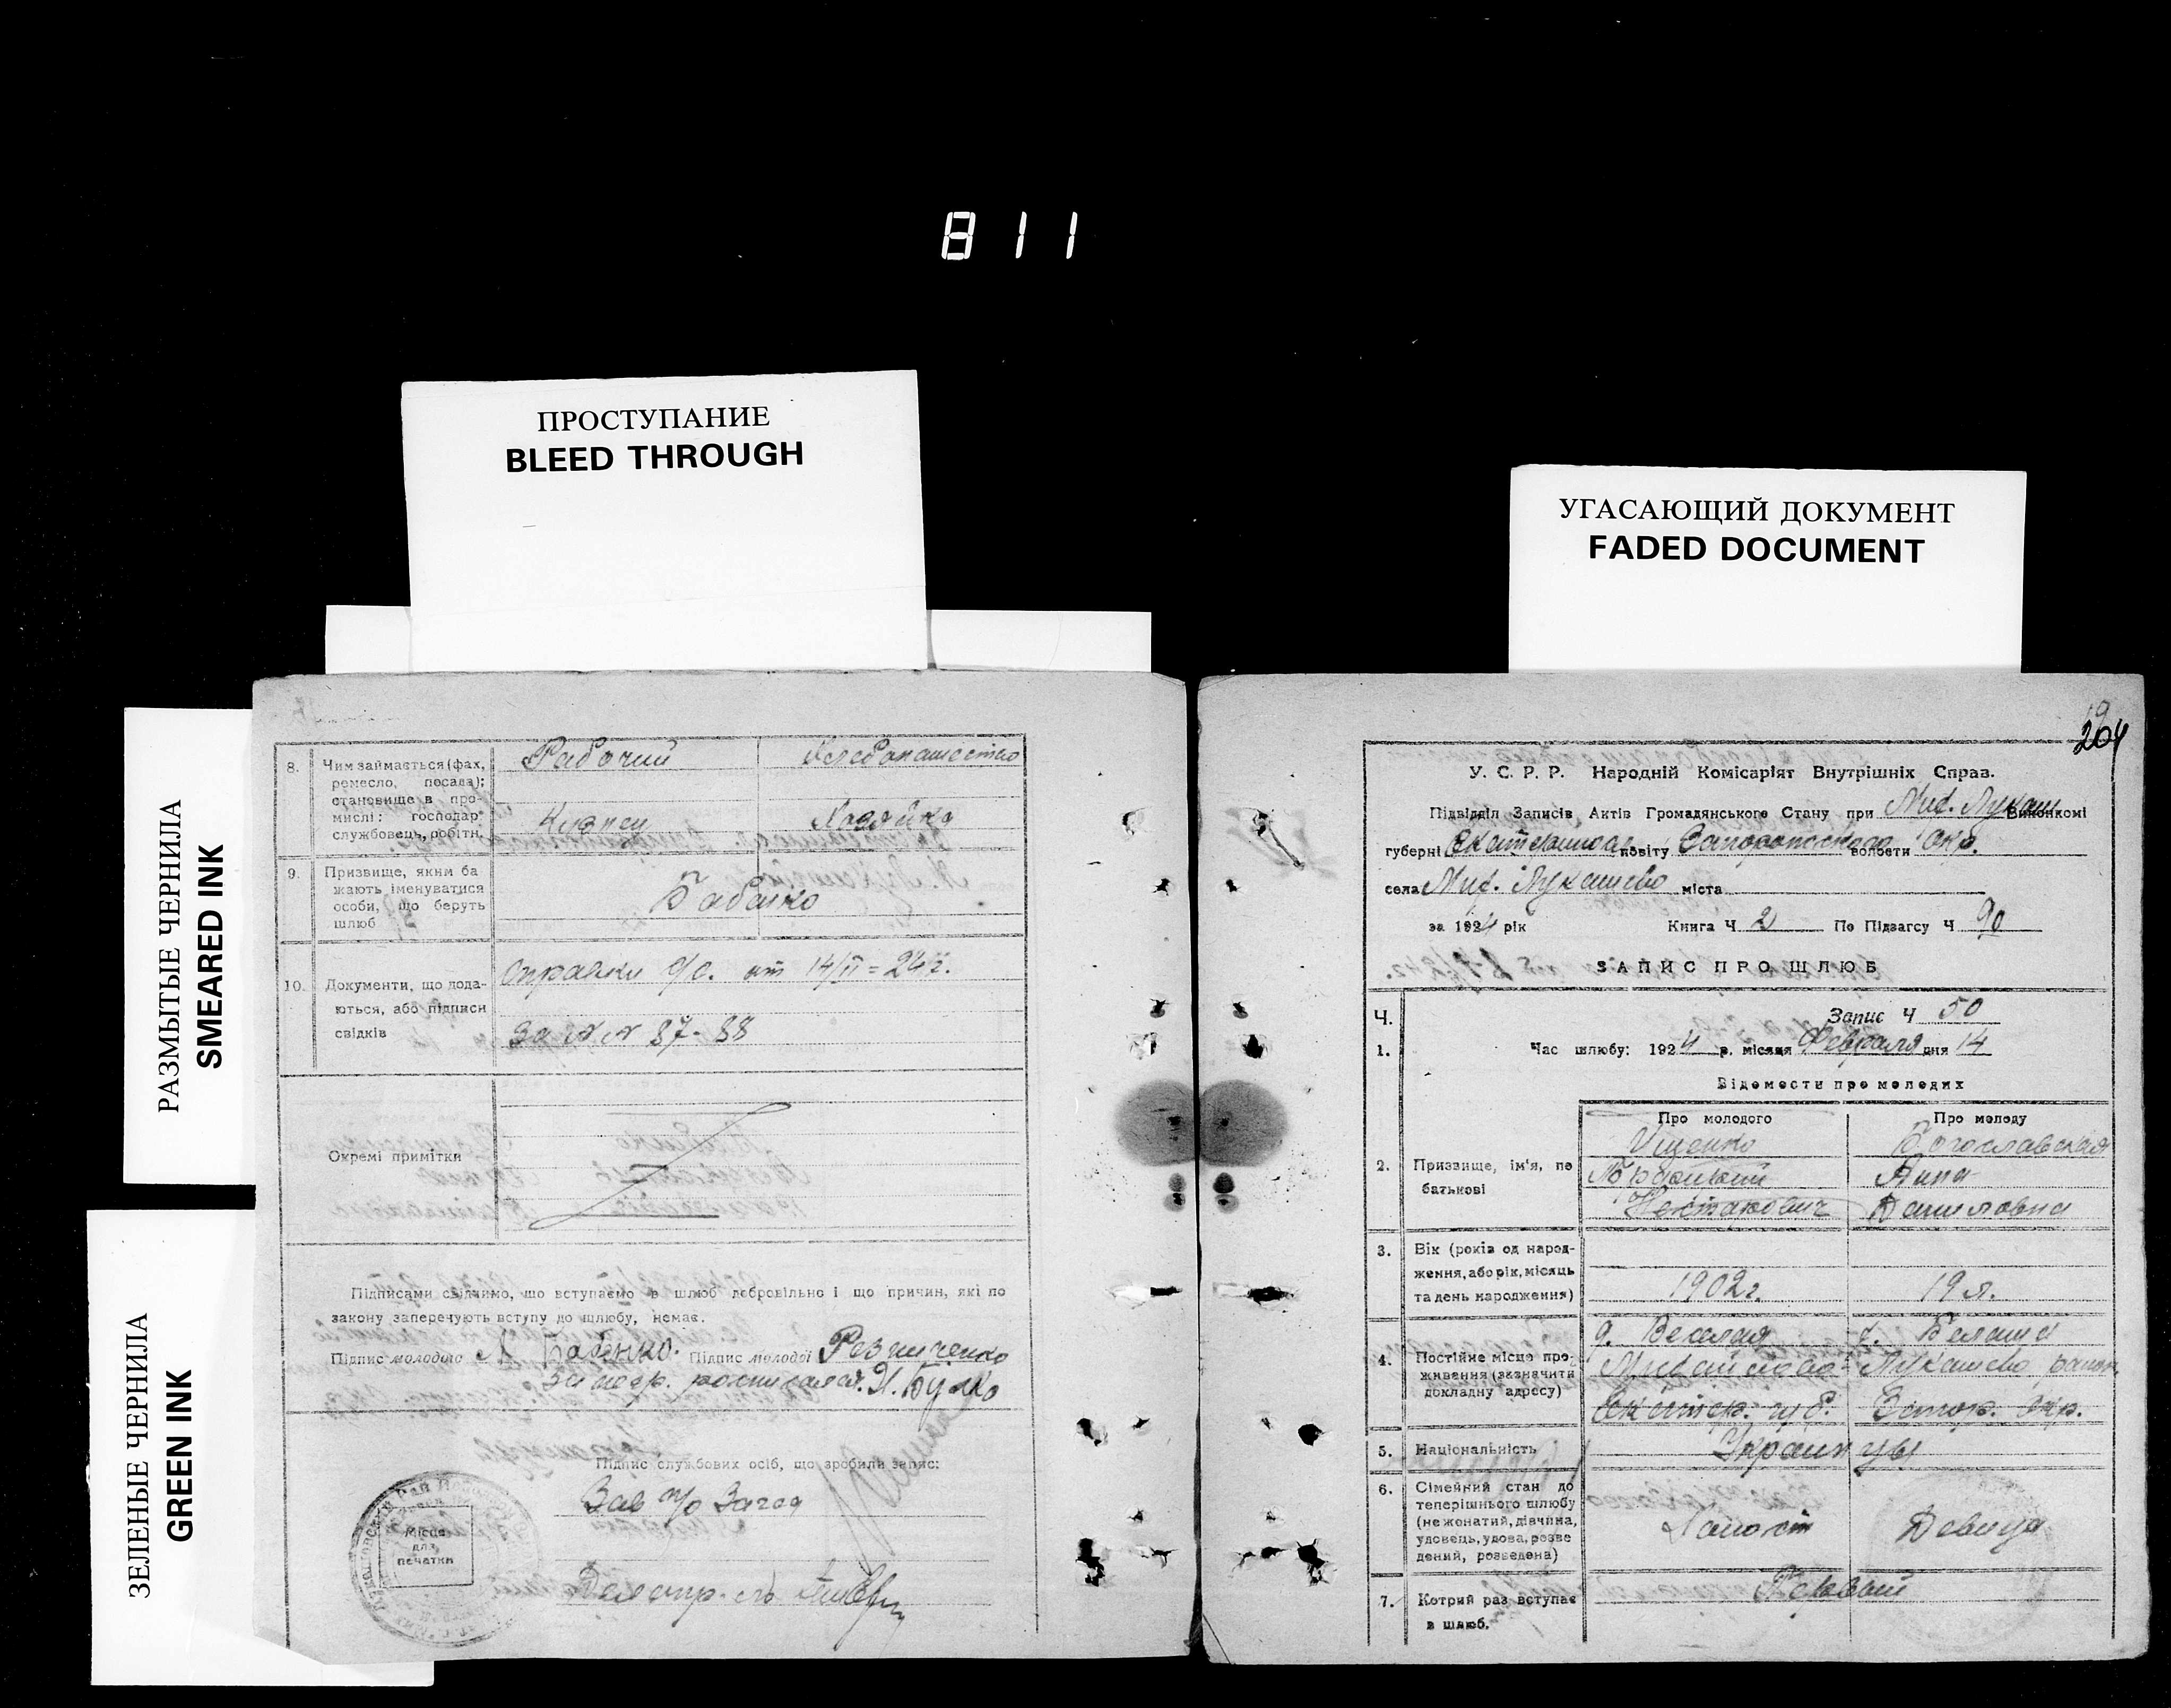 811
ПРОСТУПАНИЕ
BLEED THROUGH
УГАСАЮЩИЙ ДОКУМЕНТ
FADED DOCUMENT
РАЗМЫТЫЕ ЧЕРНИЛА
SMEARED INK
ЗЕЛЕНЫЕ ЧЕРНИЛА
GREEN INK
8. Чим займається (фах, ремесло, посада); становище в промислі: господар, службовець, робітн.
Рабочий Хлебопашество
Кузнец Хозяйка
9. Призвище, яким ба
жають іменуватися
особи, що беруть
шлюб
Бабенко
10. Документи, що дода-
ються, або підписи
свідків
справки с/с. от 14/II=24г.
за NN 87-88
Окремі примітки
Підписами свідчимо, що вступаємо в шлюб добровільно і що причин, які по
закону заперечують вступу до шлюбу, немає.
Підпис молодого Бабенко. Підпис молодої Резниченко
За неогр. росписался
Підпис службових осіб, що зробили запис:
Зав п/о Загса
Місце
для
печатки
Делопр-ль
204
У. С. Р. Р. Народній Комісаріят Внутрішніх Справ.
Підвідділ Записів Актів Громадянського Стану при Миб. Лукаш Виконкомі
губерні Екатеринос. повіту Запорожского волости Окр.
села Лукашево міста
за 1924 рік Книга Ч 2 По Підзагсу Ч 90
ЗАПИС ПРО ШЛЮБ
Ч. Запис Ч 50
1. Час шлюбу: 1924 р. місяця Февраля дня 14
Відомости про молодих
Про молодого Про молоду
2. Призвище, ім'я, по
батькові
Ищенко Богославская
Анна
Даниловна
3. Вік (років од народ-
ження, або рік, місяць
та день народження)
1902г. 19 л.
4. Постійне місце про-
живення (зазначити
докладну адресу)
д. Веселая
Лукашево район
Екатер. губ. Запор. Окр.
5. Національність Украинцы
6. Сімейний стан до
теперішнього шлюбу
(не жонатий, дівчина,
удовець, удова, розве
дений, розведена)
Холост Девица
7. Котрий раз вступає
в шлюб.
Первый